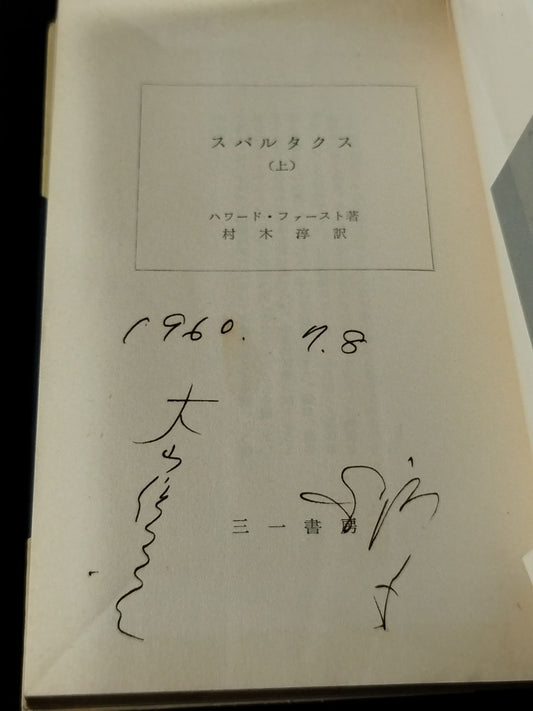 スパルタクス
(上)
ハワード・ファースト著
村木淳訳
1960. 7.8
大
三一書房